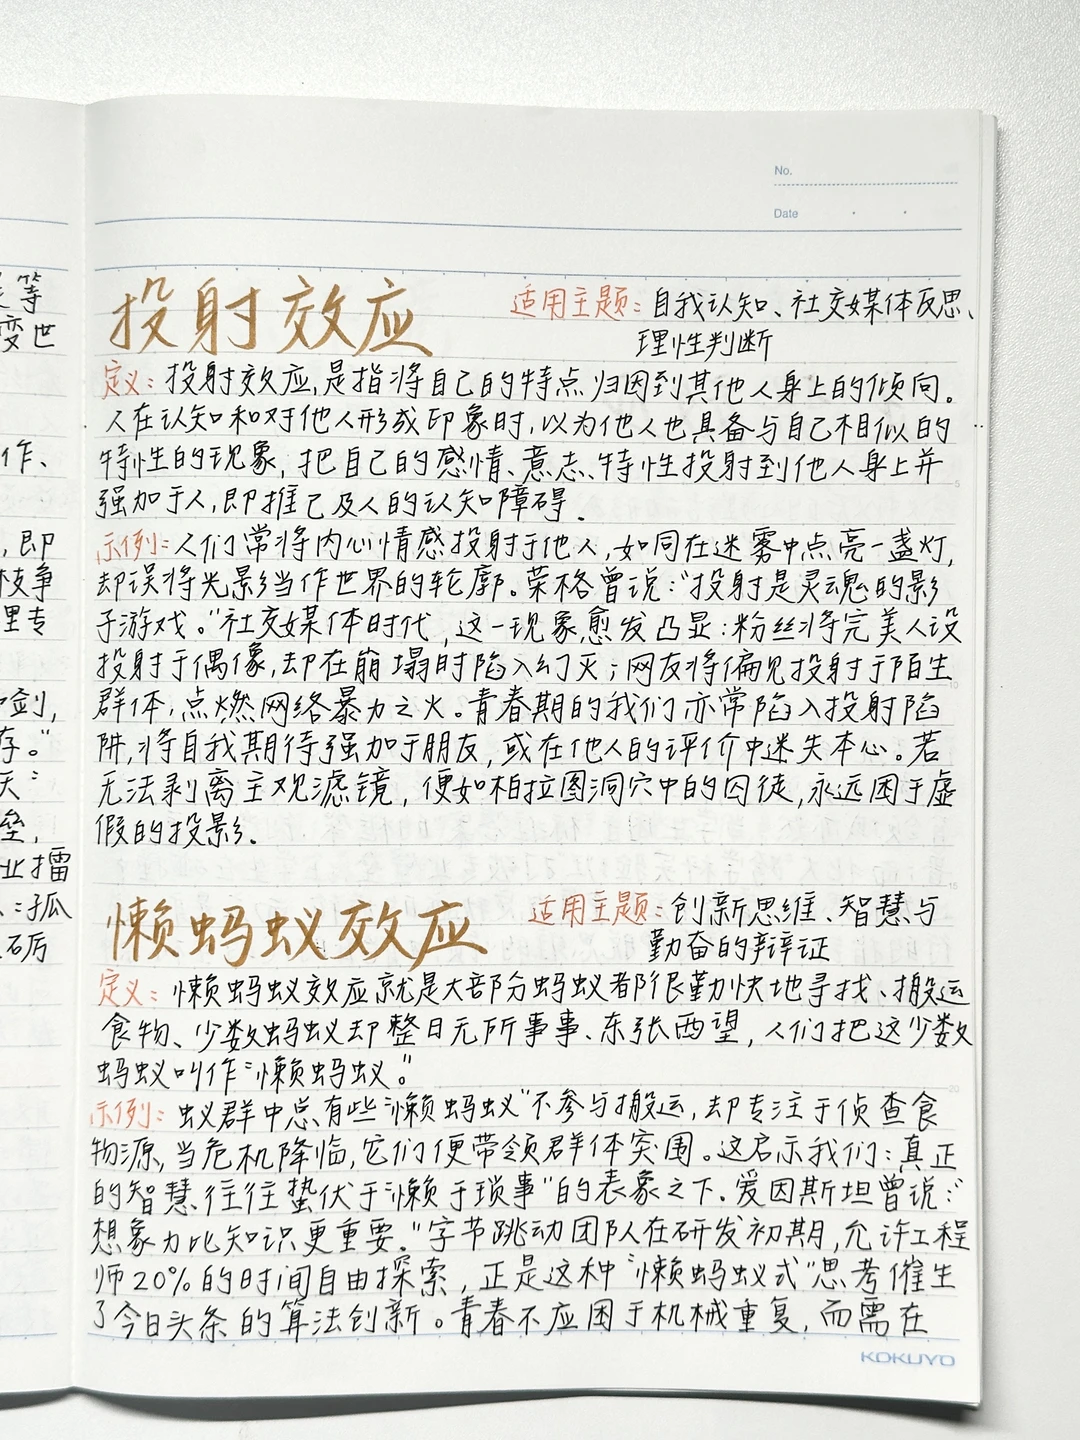 No.
Date
等
变世
作、
，即
枝争
里专
剑，
存。”
天：
垒，
业擂
：孤
砺厉
投射效应
适用主题：自我认知、社交媒体反思、
理性判断
定义：投射效应，是指将自己的特点归因到其他人身上的倾向。
人在认知和对他人形成印象时，以为他人也具备与自己相似的
特性的现象，把自己的感情、意志、特性投射到他人身上并
强加于人，即推己及人的认知障碍.
示例：人们常将内心情感投射于他人，如同在迷雾中点亮一盏灯，
却误将光影当作世界的轮廓。荣格曾说：“投射是灵魂的影
子游戏。”社交媒体时代，这一现象愈发凸显：粉丝将完美人设
投射于偶像，却在崩塌时陷入幻灭；网友将偏见投射于陌生
群体，点燃网络暴力之火。青春期的我们亦常陷入投射陷
阱，将自我期待强加于朋友，或在他人的评价中迷失本心。若
无法剥离主观滤镜，便如柏拉图洞穴中的囚徒，永远困于虚
假的投影.
懒蚂蚁效应
适用主题：创新思维、智慧与
勤奋的辩证
定义：懒蚂蚁效应就是大部分蚂蚁都很勤快地寻找、搬运
食物、少数蚂蚁却整日无所事事、东张西望，人们把这少数
蚂蚁叫作“懒蚂蚁”。
示例：蚁群中总有些“懒蚂蚁”不参与搬运，却专注于侦查食
物源，当危机降临，它们便带领群体突围。这启示我们：真正
的智慧往往蛰伏于“懒于琐事”的表象之下。爱因斯坦曾说：“
想象力比知识更重要。”字节跳动团队在研发初期，允许工程
师20%的时间自由探索，正是这种“懒蚂蚁式”思考催生
了今日头条的算法创新。青春不应困于机械重复，而需在
KOKUYO